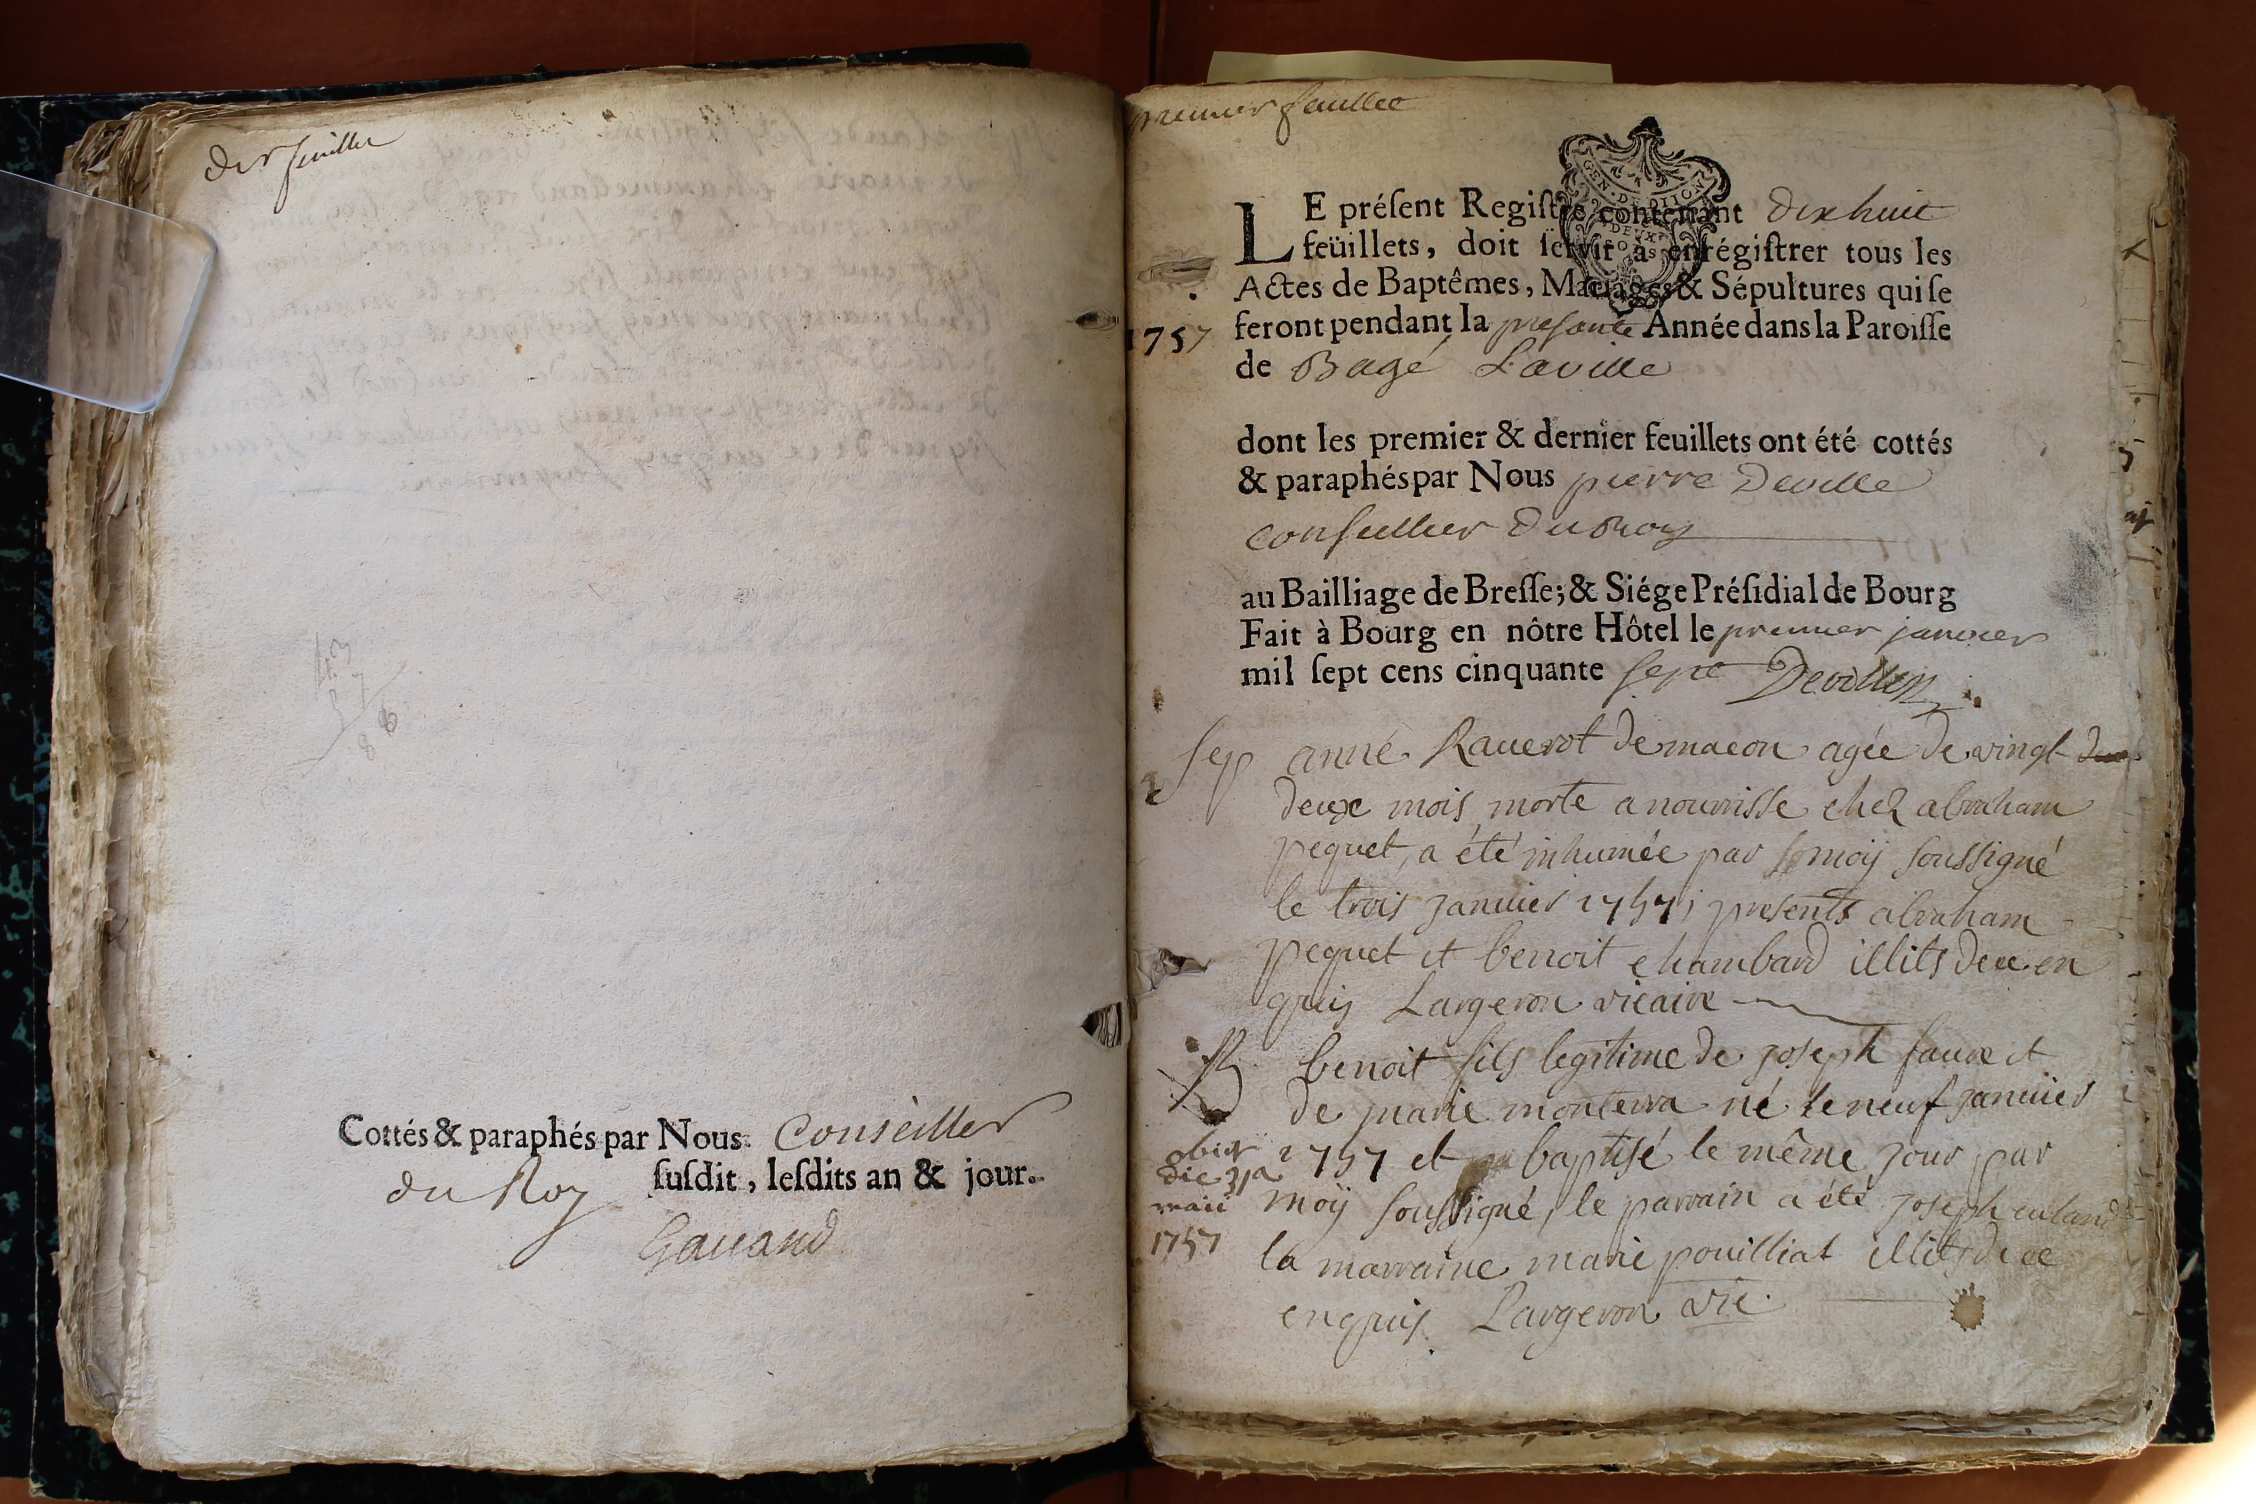 der feuillet
43
86
Cottés & paraphés par Nous Conseiller
du Roy ſuſdit, leſdits an & jour.
Gauand
premier feuillet
GEN. DE DIION
DEUX
LE préſent Regiſtre contenant dix huit
feüillets, doit ſervir à enrégiſtrer tous les
Actes de Baptêmes, Mariages & Sépultures qui ſe
1757 feront pendant la presante Année dans la Paroiſſe
de Bagé Laville
dont les premier & dernier feuillets ont été cottés
& paraphés par Nous pierre Deville
conseillier du Roy
au Bailliage de Breſſe; & Siége Préſidial de Bourg
Fait à Bourg en nôtre Hôtel le premier janvier
mil ſept cens cinquante sept Deville
sep anne Raverot de macon agée de vingt
deux mois morte a nourrisse chez abraham
pequet, a été inhumée par moÿ soussigné
le trois januier 1757, presents abraham
pequet et benoit chambard illits de ce en
quis Largeron vicaire
B benoit fils legitime de joseph faure et
de marie monterra né le neuf januier
obiit die 31a maii 1757
1757 et baptisé le même jour par
moÿ soussigné, le parrain a été joseph
la marraine marie pouilliat illits de ce
enquis Largeron vic.